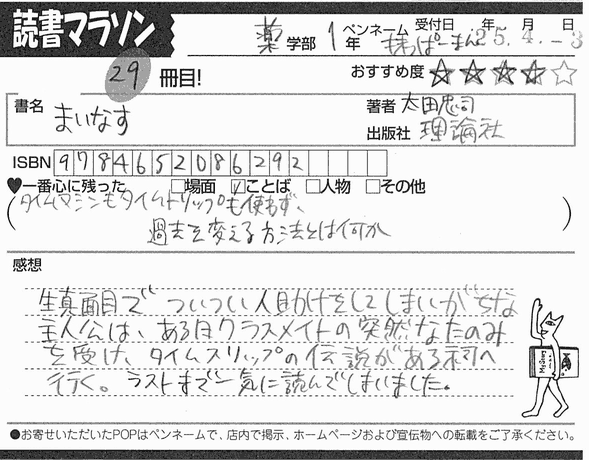 読書マラソン
薬 学部 1年 ペンネーム 受付日 年 月 日
25.4.-3
29 冊目!
おすすめ度 ★★★★☆
書名 まいなす
著者 太田忠司
出版社 理論社
ISBN 9784652086292
♥一番心に残った □場面 ☑ことば □人物 □その他
(タイムマシンもタイムトリップも使わず、
過去を変える方法とは何か)
感想
生真面目で ついつい人助けをしてしまいがちな
主人公は、ある日クラスメイトの突然なたのみ
を受け、タイムスリップの伝説がある祠へ
行く。ラストまで一気に読んでしまいました。
●お寄せいただいたPOPはペンネームで、店内で掲示、ホームページおよび宣伝物への転載をご了承ください。